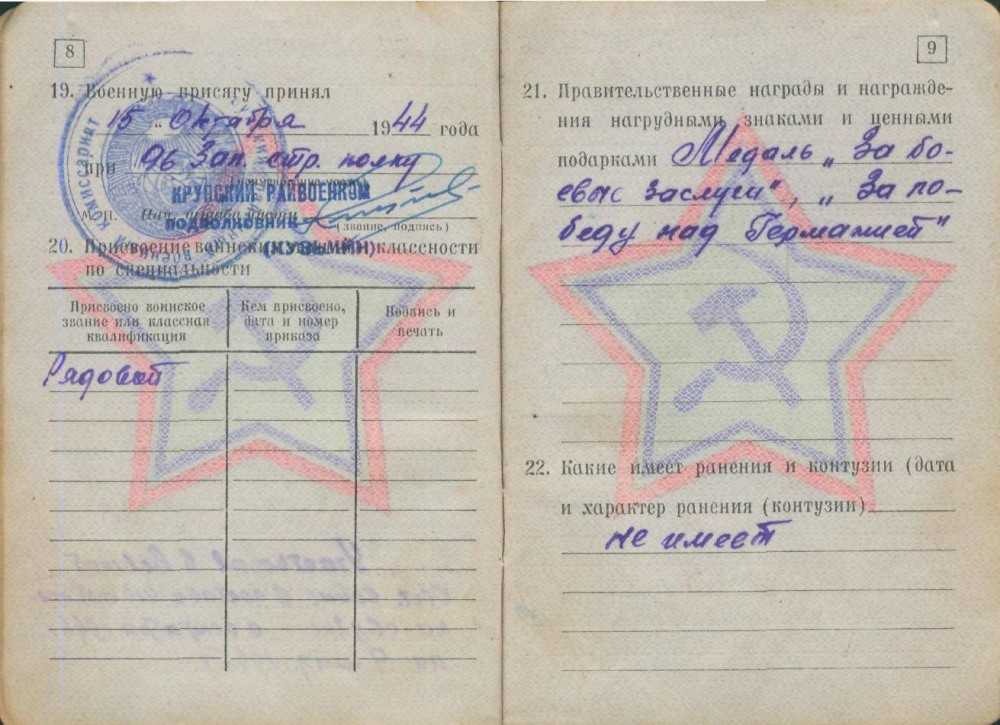 8
19. Военную присягу принял
15 „ Октября 1944 года
при 96 Зап. стр. полку
КРУПСКИЙ РАЙВОЕНКОМ
М.П.
ПОДПОЛКОВНИК
(звание, подпись)
(КУЗЬМИН)
20. Присвоение воинских классности
по специальности
Присвоено воинское звание или классная квалификация
Кем присвоено, дата и номер приказа
Подпись и печать
Рядовой
9
21. Правительственные награды и награжде-
ния нагрудными знаками и ценными
подарками Медаль „За бо-
евые заслуги", „За по-
беду над Германией"
22. Какие имеет ранения и контузии (дата
и характер ранения (контузии)
не имеет